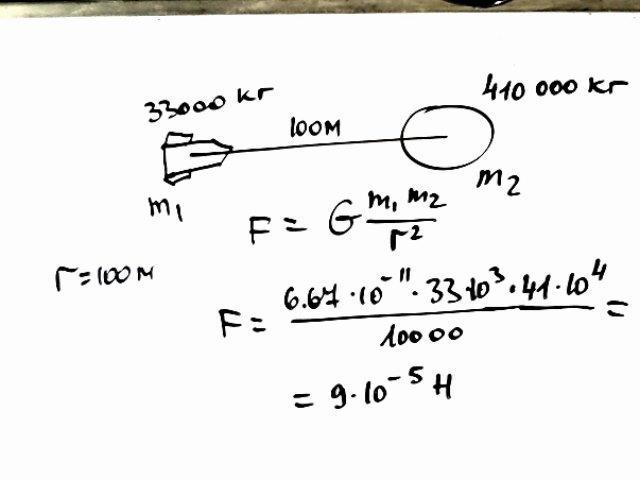 33000 кг
410 000 кг
100м
m₁
m₂
F = G m₁ m₂ / r²
r = 100 м
F = 6.67 · 10⁻¹¹ · 33·10³ · 41 · 10⁴ / 10000 =
= 9 · 10⁻⁵ Н